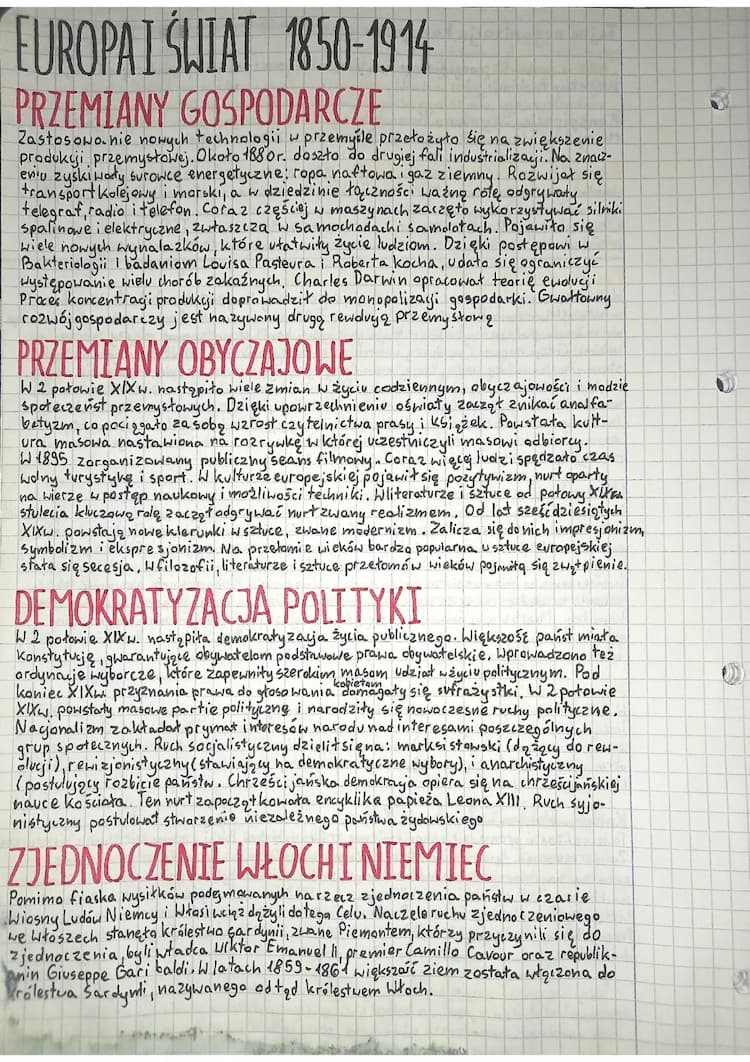 EUROPA I ŚWIAT 1850-1914
PRZEMIANY GOSPODARCZE
Zastosowanie nowych technologii w przemyśle przełożyło się na zwiększenie
produkcji przemysłowej. Około 1880r. doszło do drugiej fali industrializacji. Na znacz-
eniu zyskiwały surowce energetyczne: ropa naftowa i gaz ziemny. Rozwijał się
transport kolejowy i morski, a w dziedzinie łączności ważną rolę odgrywały
telegraf, radio i telefon. Coraz częściej w maszynach zaczęto wykorzystywać silniki
spalinowe i elektryczne, zwłaszcza w samochodach i samolotach. Pojawiło się
wiele nowych wynalazków, które ułatwiły życie ludziom. Dzięki postępowi w
Bakteriologii i badaniom Lovisa Pasteura i Roberta Kocha, udało się ograniczyć
występowanie wielu chorób zakaźnych. Charles Darwin opracował teorię ewolucji
Proces koncentracji produkcji doprowadził do monopolizacji gospodarki. Gwałtowny
rozwój gospodarczy jest nazywany drugą rewolucją przemysłową
PRZEMIANY OBYCZAJOWE
W 2 połowie XIXw. nastąpiło wiele zmian w życiu codziennym, obyczajowości i modzie
społeczeństw przemysłowych. Dzięki upowszechnieniu oświaty zaczął znikać analfa-
betyzm, co pociągało za sobą wzrost czytelnictwa prasy i książek. Powstała kult-
ura masowa nastawiona na rozrywkę w której uczestniczyli masowi odbiorcy.
W 1895 zorganizowany publiczny seans filmowy. Coraz więcej ludzi spędzało czas
wolny turystykę i sport. W kulturze europejskiej pojawił się pozytywizm, nurt oparty
na wierze w postęp naukowy i możliwości techniki. W literaturze i sztuce od połowy XIX
stulecia kluczową rolę zaczął odgrywać nurt zwany realizmem. Od lat sześćdziesiątych
XIXw. powstają nowe kierunki w sztuce, zwane modernizm. Zalicza się do nich impresjonizm,
symbolizm i ekspresjonizm. Na przełomie wieków bardzo popularna w sztuce europejskiej
stała się secesja. W filozofii, literaturze i sztuce przełomów wieków pojawiła się zwątpienie.
DEMOKRATYZACJA POLITYKI
W 2 połowie XIXw. nastąpiła demokratyzacja życia publicznego. Większość państ miała
Konstytucję, gwarantujące obywatelom podstawowe prawa obywatelskie. Wprowadzono też
ordynacje wyborcze, które zapewniły szerokim masom udział w życiu politycznym. Pod
koniec XIXw. przyznania prawa do głosowania kobietom domagały się sufrażystki. W 2 połowie
XIXw. powstały masowe partie polityczne i narodziły się nowoczesne ruchy polityczne.
Nacjonalizm zakładał prymat interesów narodu nad interesami poszczególnych
grup społecznych. Ruch socjalistyczny dzielił się na: marksistowski (dążący do rew-
olucji), rewizjonistyczny (stawiający na demokratyczne wybory), i anarchistyczny
(postulujący rozbicie państw. Chrześcijańska demokracja opiera się na chrześcijańskiej
nauce Kościoła. Ten nurt zapoczątkowała encyklika papieża Leona XIII. Ruch syjo-
nistyczny postulował stworzenie niezależnego państwa żydowskiego
ZJEDNOCZENIE WŁOCH I NIEMIEC
Pomimo fiaska wysiłków podejmowanych na rzecz zjednoczenia państw w czasie
Wiosny Ludów Niemcy i Włosi wciąż dążyli do tego celu. Na czele ruchu zjednoczeniowego
we Włoszech stanęła królestwo Sardynii, zwane Piemontem, którzy przyczynili się do
zjednoczenia, byli władca Wiktor Emanuel II, premier Camillo Cavour oraz republik-
anin Giuseppe Garibaldi. W latach 1859-1861 większość ziem została włączona do
królestwa Sardynii, nazywanego odtąd królestwem Włoch.